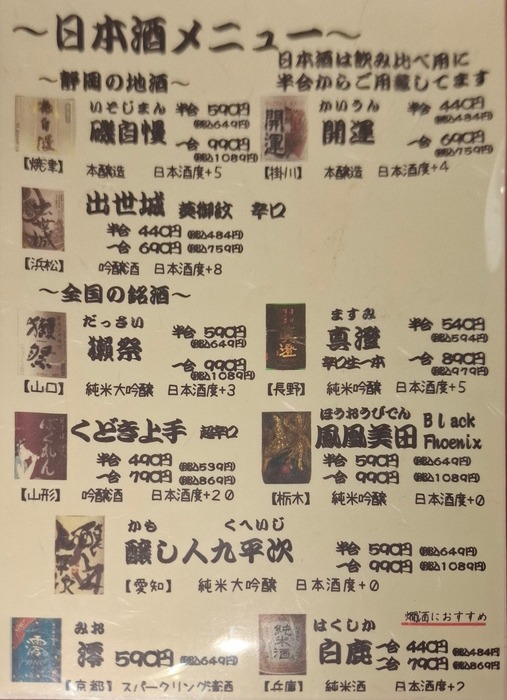 ～日本酒メニュー～
日本酒は飲み比べ用に
半合からご用意してます
～静岡の地酒～
いそじまん
磯自慢
半合 590円(税込649円)
一合 990円(税込1089円)
【焼津】 本醸造 日本酒度+5
かいうん
開運
半合 440円(税込484円)
一合 690円(税込759円)
【掛川】 本醸造 日本酒度+4
出世城 葵御紋 辛口
半合 440円(税込484円)
一合 690円(税込759円)
【浜松】 吟醸酒 日本酒度+8
～全国の銘酒～
だっさい
獺祭
半合 590円(税込649円)
一合 990円(税込1089円)
【山口】 純米大吟醸 日本酒度+3
ますみ
真澄
辛口生一本
半合 540円(税込594円)
一合 890円(税込979円)
【長野】 純米吟醸 日本酒度+5
くどき上手 超辛口
半合 490円(税込539円)
一合 790円(税込869円)
【山形】 吟醸酒 日本酒度+20
ほうおうびでん
鳳凰美田 Black Phoenix
半合 590円(税込649円)
一合 990円(税込1089円)
【栃木】 純米吟醸 日本酒度+0
かも くへいじ
醸し人九平次
半合 590円(税込649円)
一合 990円(税込1089円)
【愛知】 純米大吟醸 日本酒度+0
みお
澪 590円(税込649円)
【京都】 スパークリング清酒
燗酒におすすめ
はくしか
白鹿
一合 440円(税込484円)
二合 790円(税込869円)
【兵庫】 純米酒 日本酒度+2